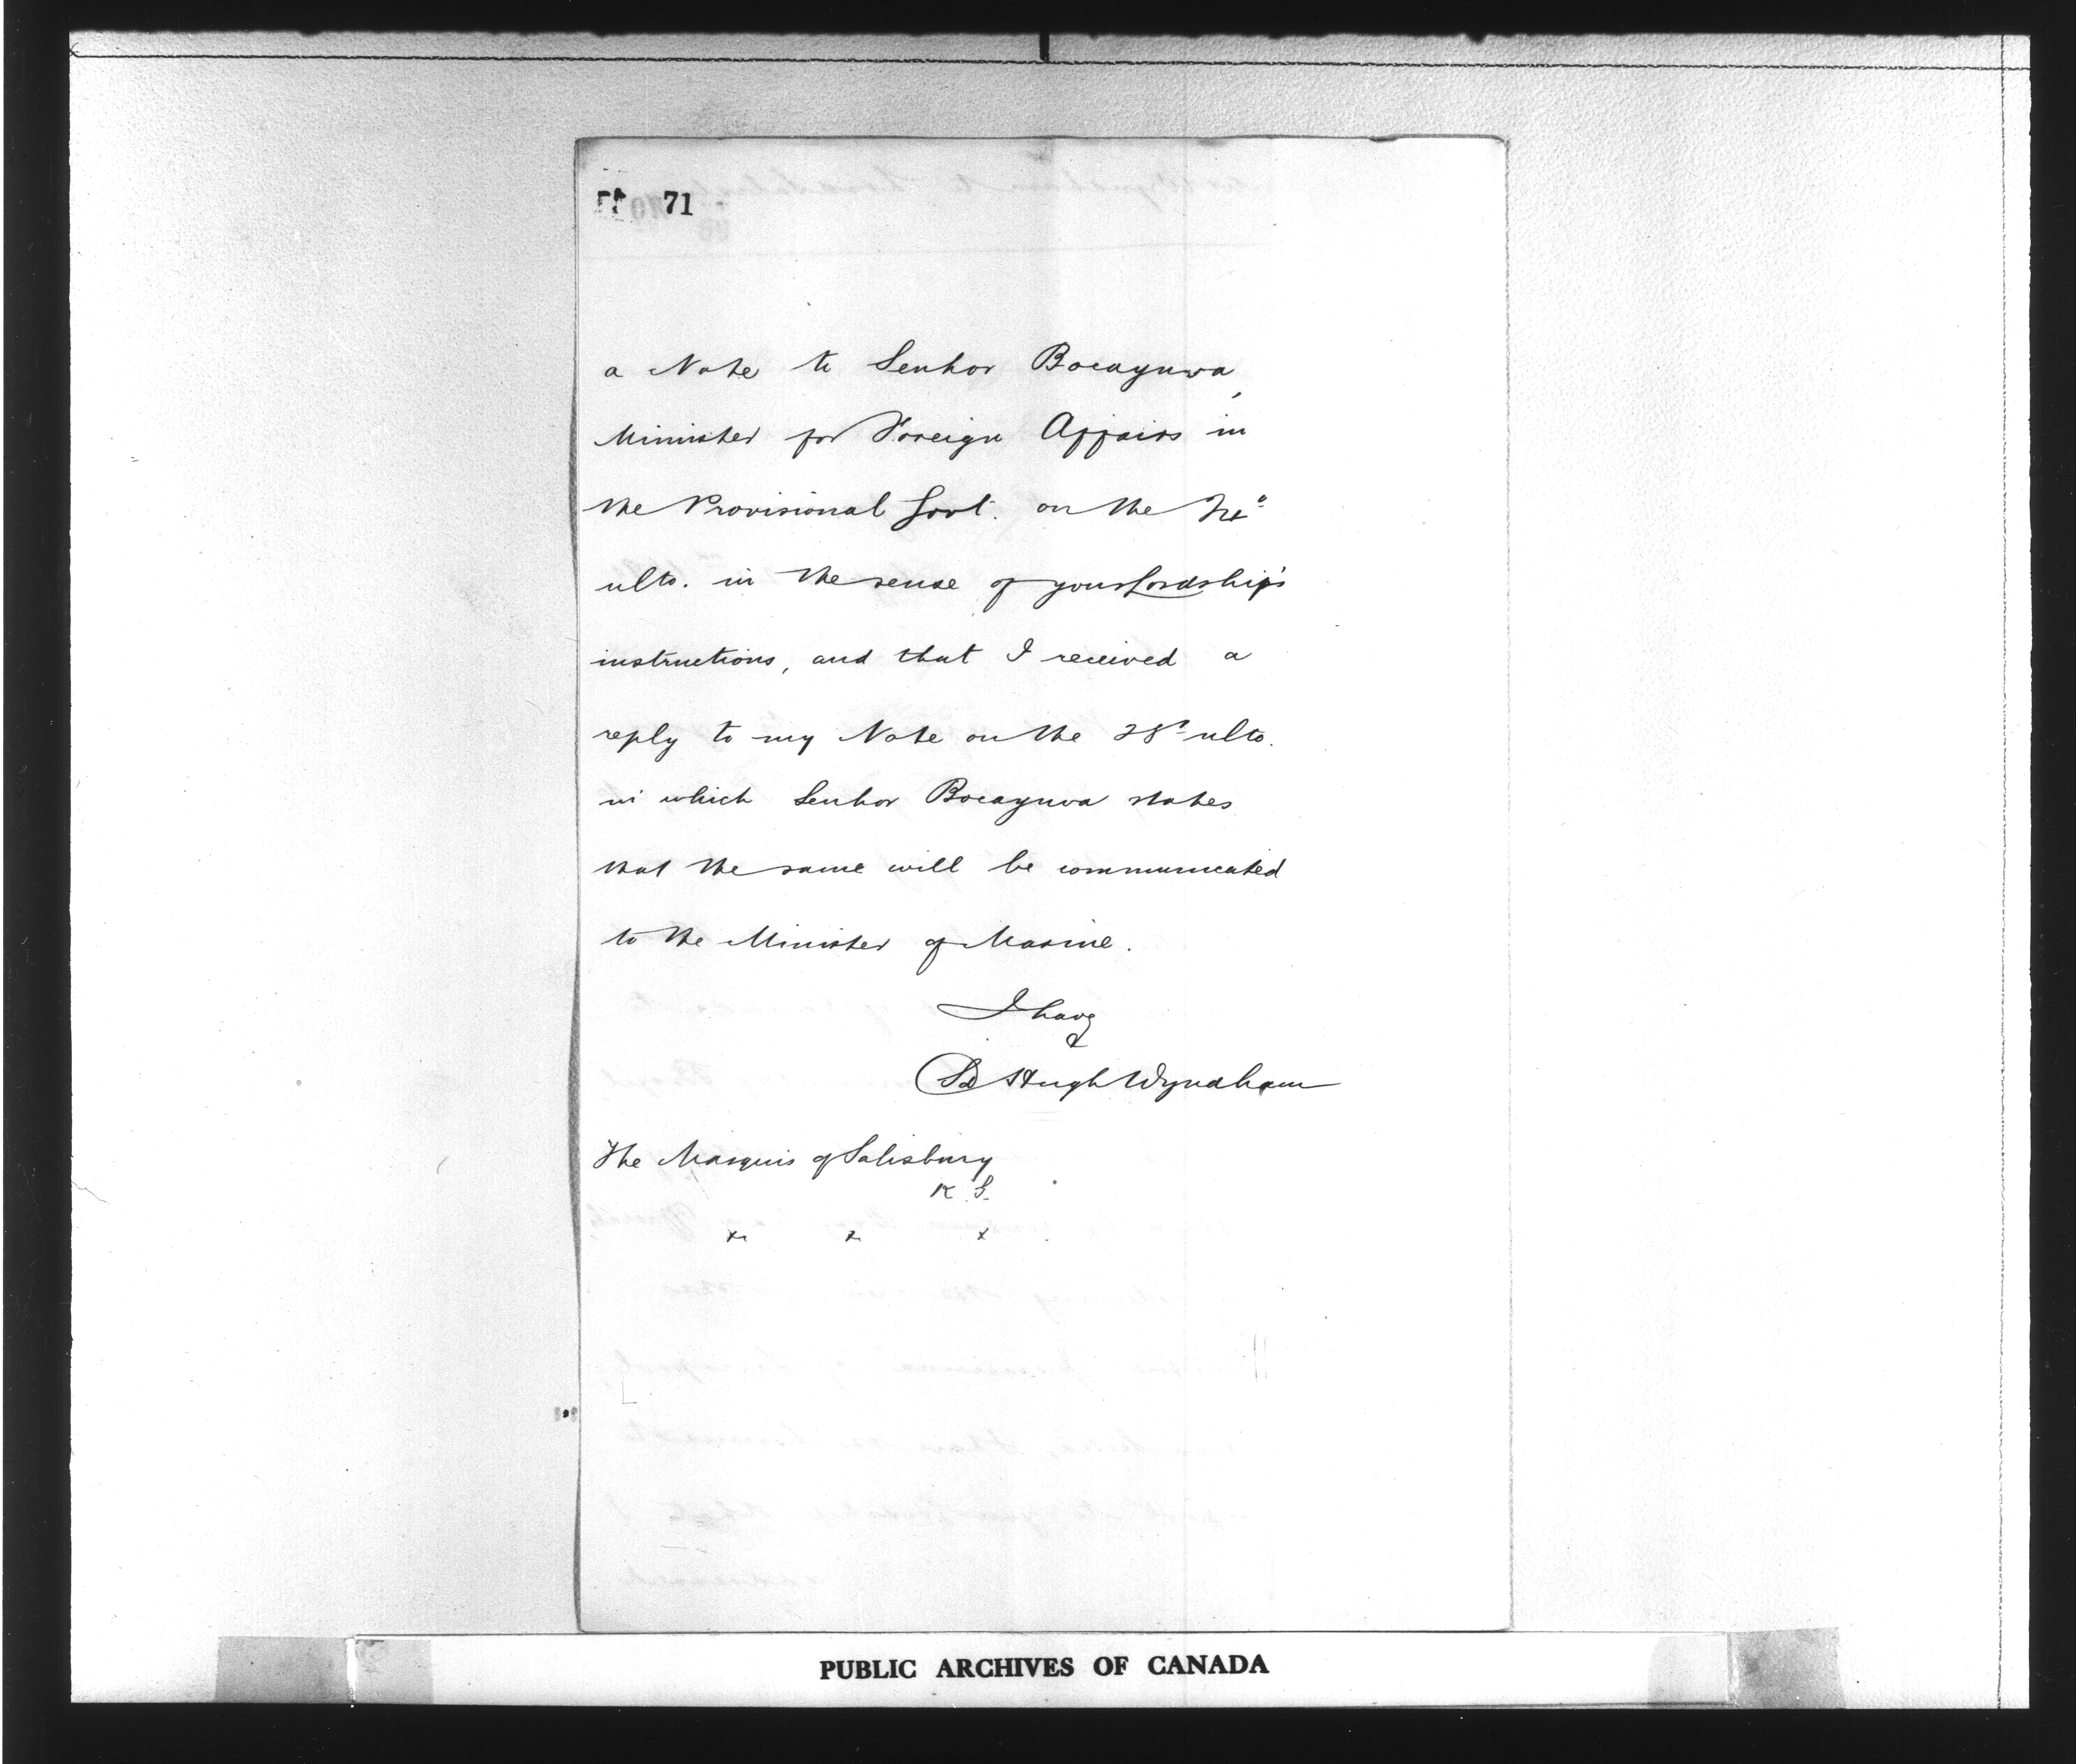 71
a Note to Senhor Bocayuva,
Minister for Foreign Affairs in
the Provisional Govt. on the
ulto. in the sense of your Lordship's
instructions, and that I received a
reply to my Note on the 28th ulto.
in which Senhor Bocayuva states
that the same will be communicated
to the Minister of Marine.
I have
&
(Sd Hugh Wyndham
The Marquis of Salisbury
K. G.
x x x
PUBLIC ARCHIVES OF CANADA